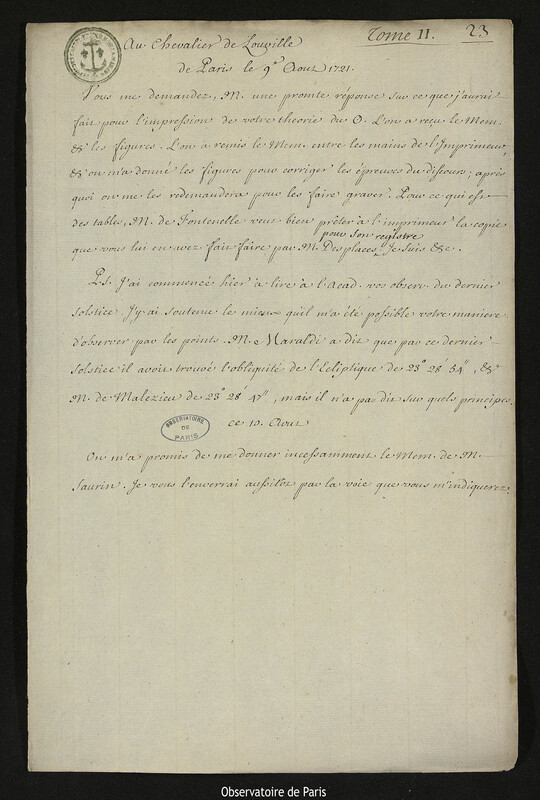 Tome II. 23
Au Chevalier de Louville
de Paris le 9e Aout 1721.
Vous me demandez, M. une promte réponse sur ce que j'aurai
fait pour l'impression de votre theorie du ☉. L'on a reçu le Mem.
& les figures. L'on a remis le Mem. entre les mains de l'Imprimeur,
& on m'a donné les figures pour corriger les épreuves du discours; après
quoi on me les redemandera pour les faire graver. Pour ce qui est
des tables, M. de Fontenelle veut bien prêter à l'imprimeur la copie
pour son registre
que vous lui en avez fait faire par M. Desplaces. Je suis &c.
P.s. J'ai commencé hier à lire à l'Acad. vos observ. du dernier
solstice. J'y ai soutenu le mieux qu'il m'a été possible votre maniere
d'observer par les points. M. Maraldi a dit que par ce dernier
solstice il avoit trouvé l'obliquité de l'Ecliptique de 23° 28' 54", &
M. de Malézieu de 23° 28' 47", mais il n'a pas dit sur quels principes.
ce 10. Aout
OBSERVATOIRE
DE
PARIS
On m'a promis de me donner incessamment le Mem. de M.
Saurin. Je vous l'enverrai aussitôt par la voie que vous m'indiquerez.
Observatoire de Paris